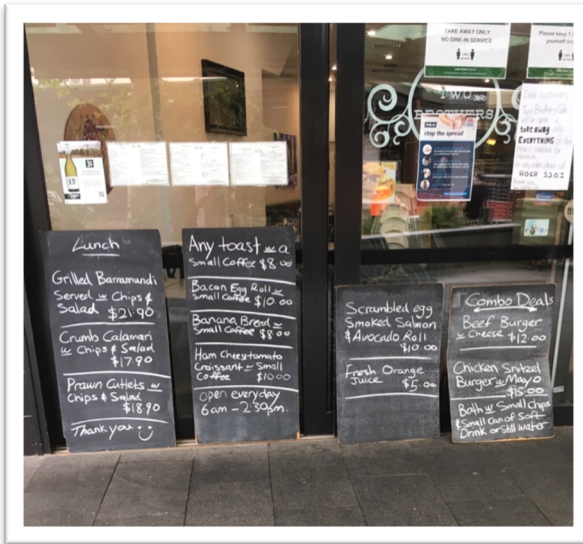 TAKE AWAY ONLY
NO DINE-IN SERVICE
Please keep 1.
TWO
BROTHERS
stop the spread
Dear customers
Two Brothers Cafe
take away
EVERYTHING
Lunch
Grilled Barramundi
Served w Chips &
Salad $21.90
Crumb Calamari
w Chips & Salad
$17.90
Prawn Cutlets w
Chips & Salad
$18.90
Thank you
Any toast w a
Small Coffee $8.00
Bacon Egg Roll w
Small Coffee $10.00
Banana Bread w
Small Coffee $8.00
Ham Cheese tomato
Croissant w Small
Coffee $10.00
Open everyday
6am - 2:30pm.
Scrambled egg
Smoked Salmon
& Avocado Roll
$10.00
Fresh Orange
Juice $5.00
Combo Deals
Beef Burger
w Cheese $12.00
Chicken Snitzel
Burger w Mayo
$15.00
Both w Small Chips
& Small Can of Soft
Drink or Still Water